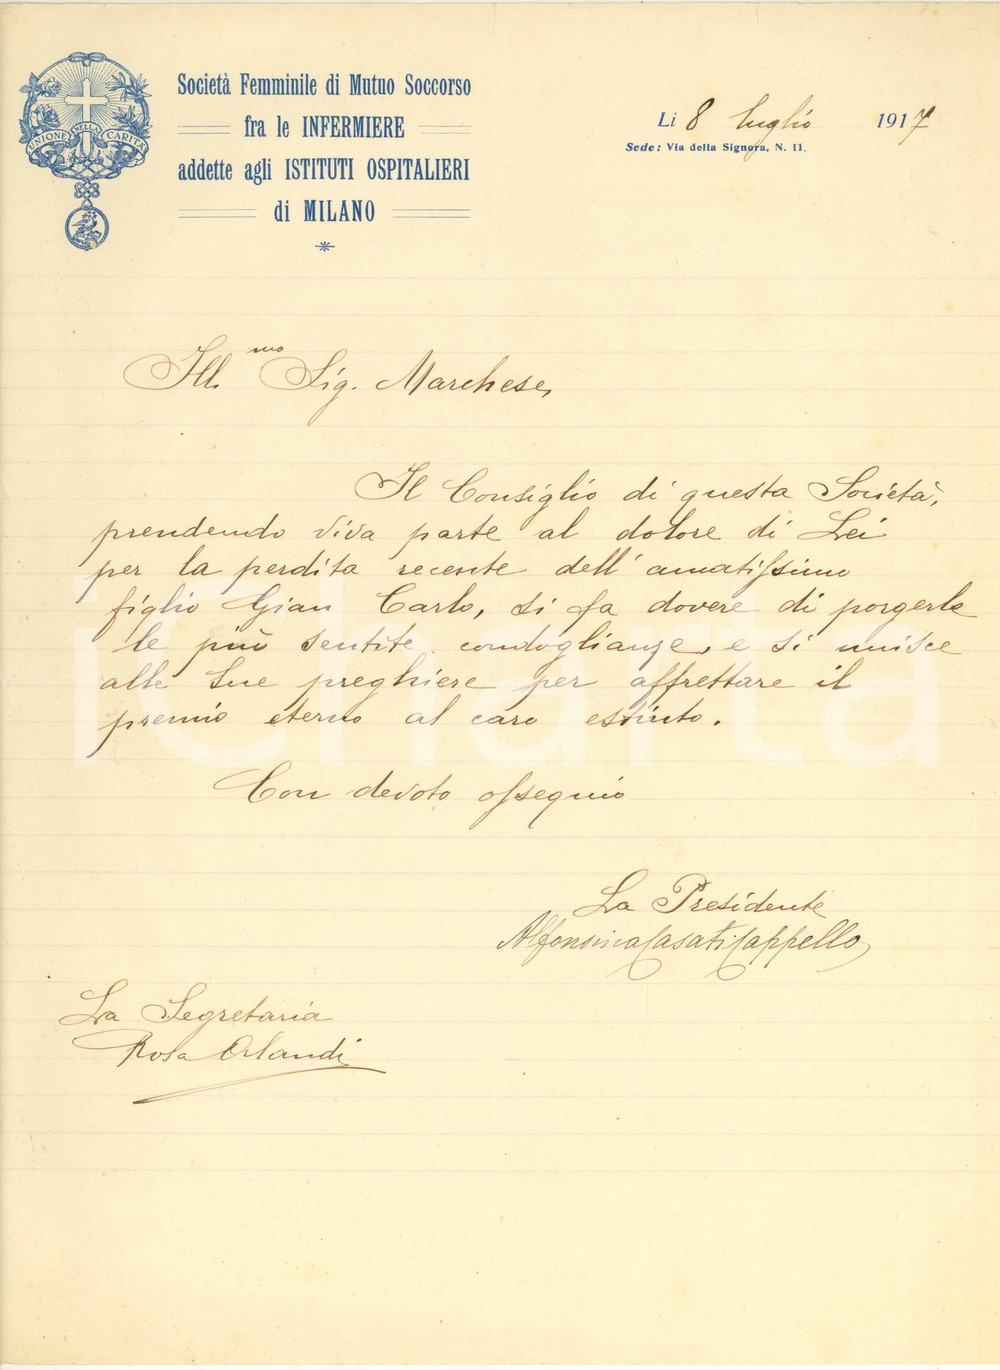 UNIONE NELLA CARITÀ
Società Femminile di Mutuo Soccorso
fra le INFERMIERE
addette agli ISTITUTI OSPITALIERI
di MILANO
Li 8 luglio 1917
Sede: Via della Signora, N. 11.
Ill.mo Sig. Marchese,
Il Consiglio di questa Società,
prendendo viva parte al dolore di Lei
per la perdita recente dell'amatissimo
figlio Gian Carlo, si fa dovere di porgerle
le più sentite condoglianze, e si unisce
alle Sue preghiere per affrettare il
premio eterno al caro estinto.
Con devoto ossequio
La Presidente
Alfonsina Casati Cappello
La Segretaria
Rosa Orlandi
iCharta